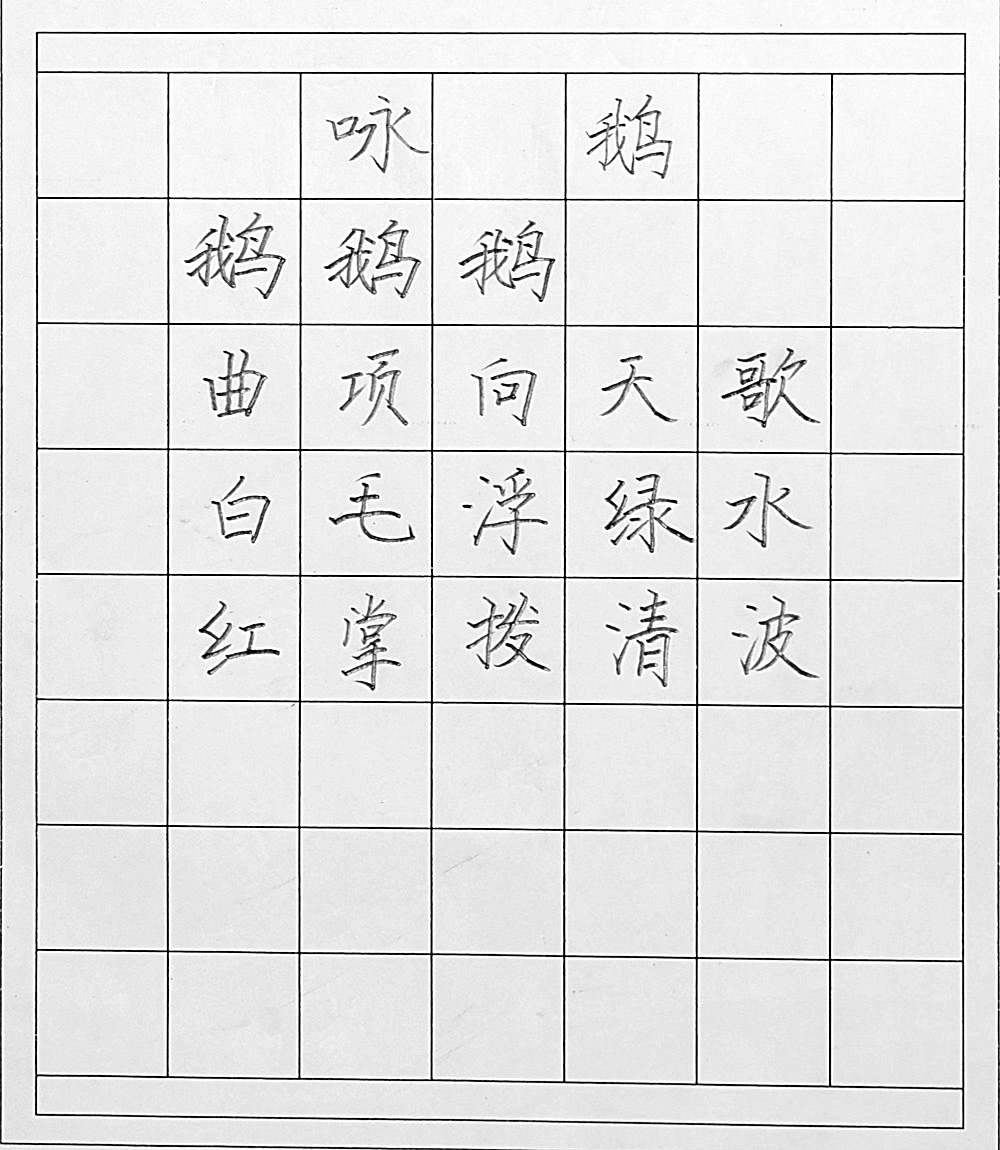 咏鹅
鹅鹅鹅
曲项向天歌
白毛浮绿水
红掌拨清波